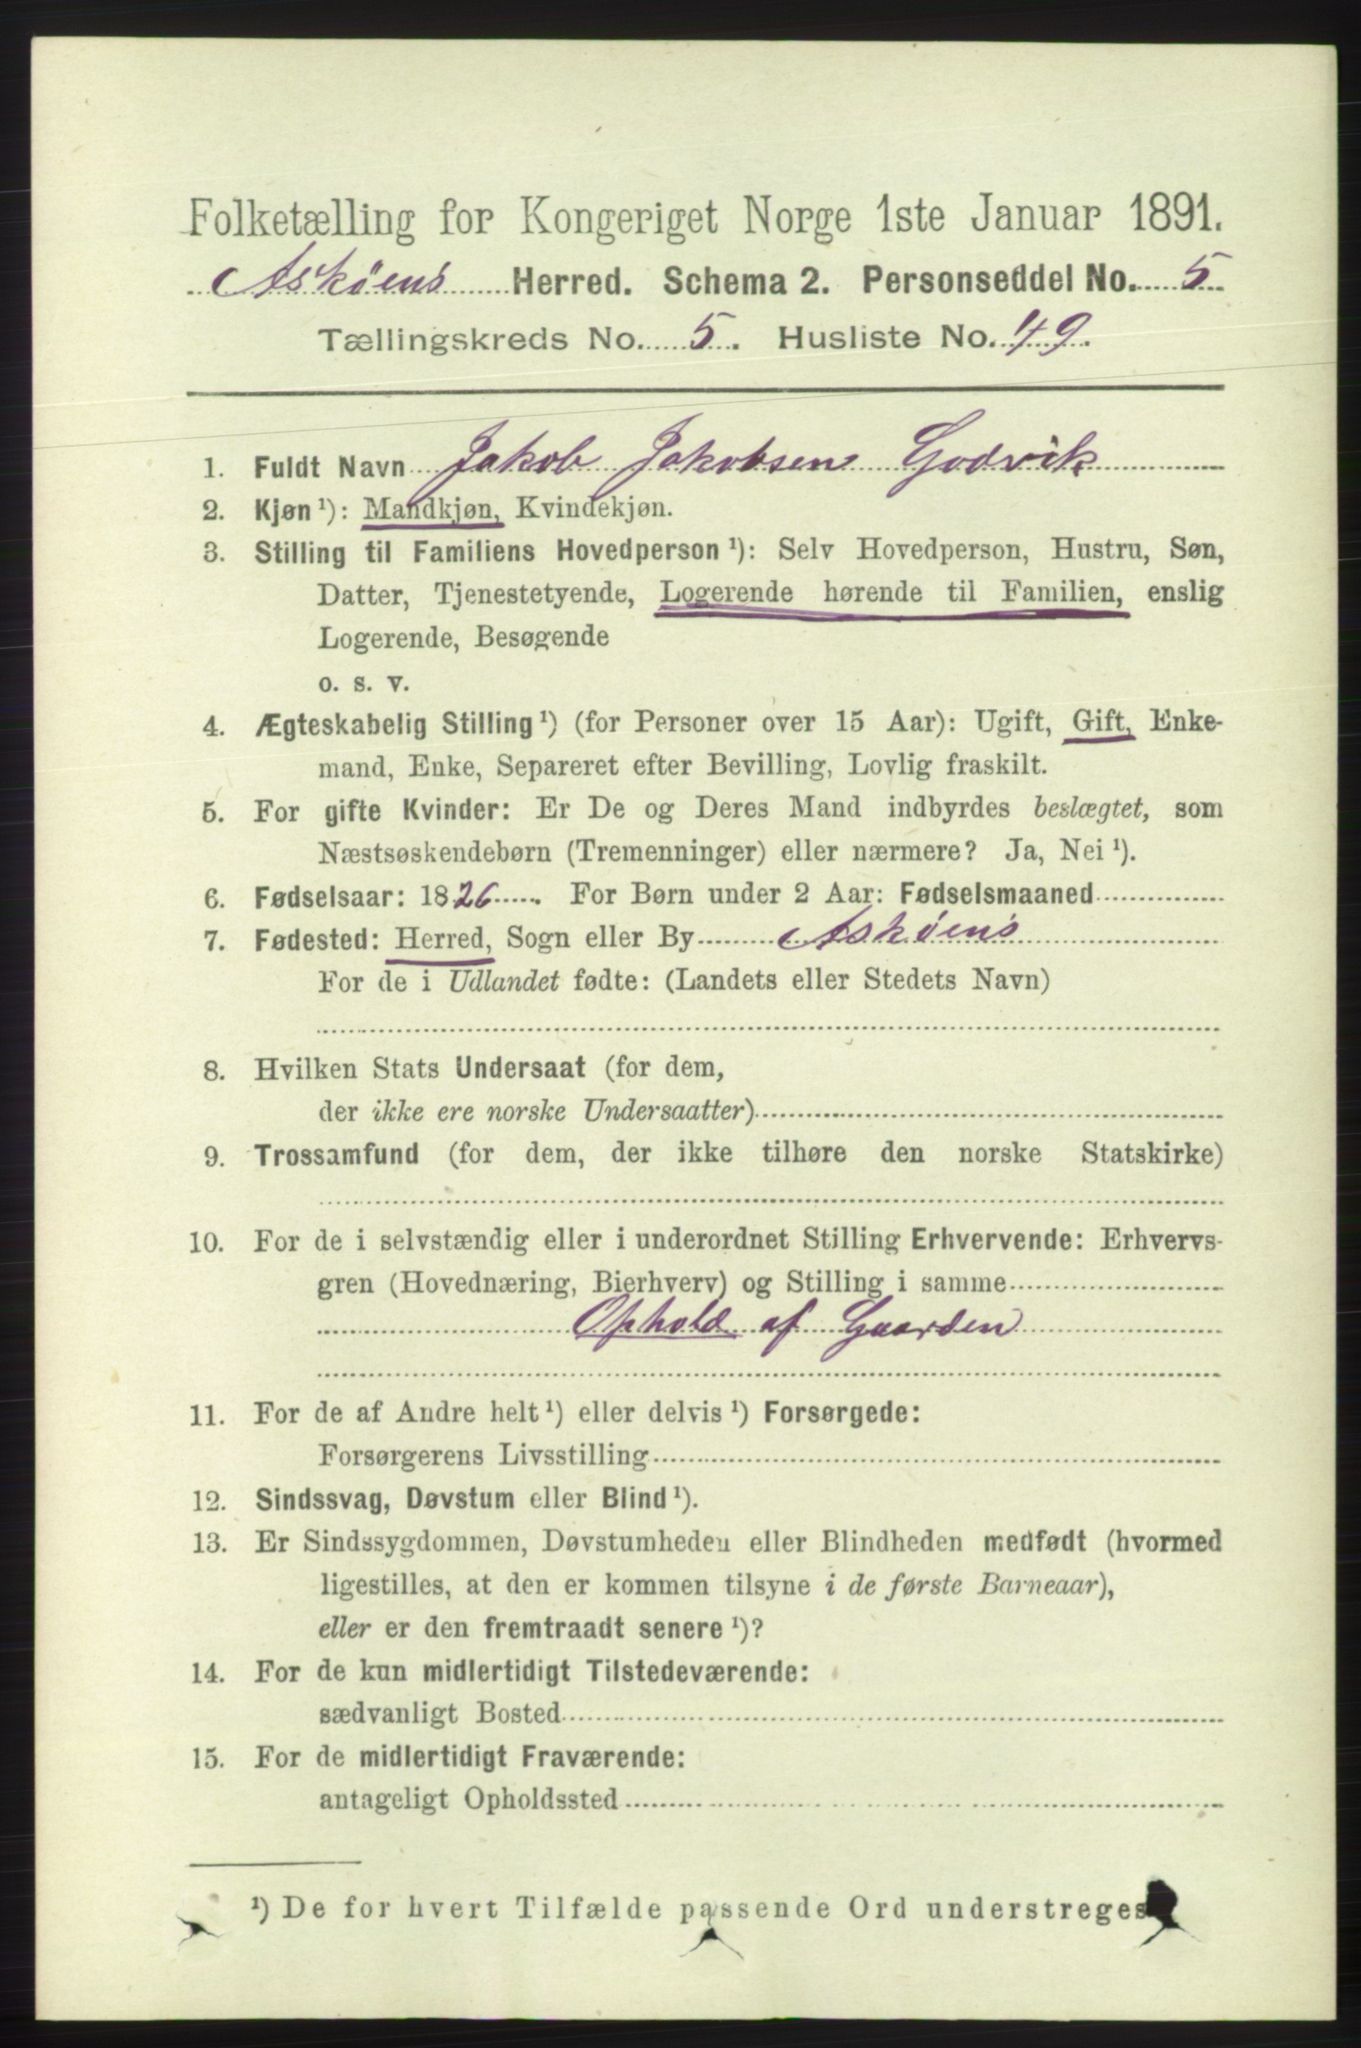 Folketælling for Kongeriget Norge 1ste Januar 1891.
Askøens Herred. Schema 2. Personseddel No. 5
Tællingskreds No. 5. Husliste No. 49.
1. Fuldt Navn Jakob Jakobsen Godvik
2. Kjøn ¹): Mandkjøn, Kvindekjøn.
3. Stilling til Familiens Hovedperson ¹): Selv Hovedperson, Hustru, Søn,
Datter, Tjenestetyende, Logerende hørende til Familien, enslig
Logerende, Besøgende
o. s. v.
4. Ægteskabelig Stilling ¹) (for Personer over 15 Aar): Ugift, Gift, Enke-
mand, Enke, Separeret efter Bevilling, Lovlig fraskilt.
5. For gifte Kvinder: Er De og Deres Mand indbyrdes beslægtet, som
Næstsøskendebørn (Tremenninger) eller nærmere? Ja, Nei ¹).
6. Fødselsaar: 1826. For Børn under 2 Aar: Fødselsmaaned
7. Fødested: Herred, Sogn eller By Askøens
For de i Udlandet fødte: (Landets eller Stedets Navn)
8. Hvilken Stats Undersaat (for dem,
der ikke ere norske Undersaatter)
9. Trossamfund (for dem, der ikke tilhøre den norske Statskirke)
10. For de i selvstændig eller i underordnet Stilling Erhvervende: Erhvervs-
gren (Hovednæring, Bierhverv) og Stilling i samme
Ophold af Gaarden
11. For de af Andre helt ¹) eller delvis ¹) Forsørgede:
Forsørgerens Livsstilling
12. Sindssvag, Døvstum eller Blind ¹).
13. Er Sindssygdommen, Døvstumheden eller Blindheden medfødt (hvormed
ligestilles, at den er kommen tilsyne i de første Barneaar),
eller er den fremtraadt senere ¹)?
14. For de kun midlertidigt Tilstedeværende:
sædvanligt Bosted
15. For de midlertidigt Fraværende:
antageligt Opholdssted
¹) De for hvert Tilfælde passende Ord understreges